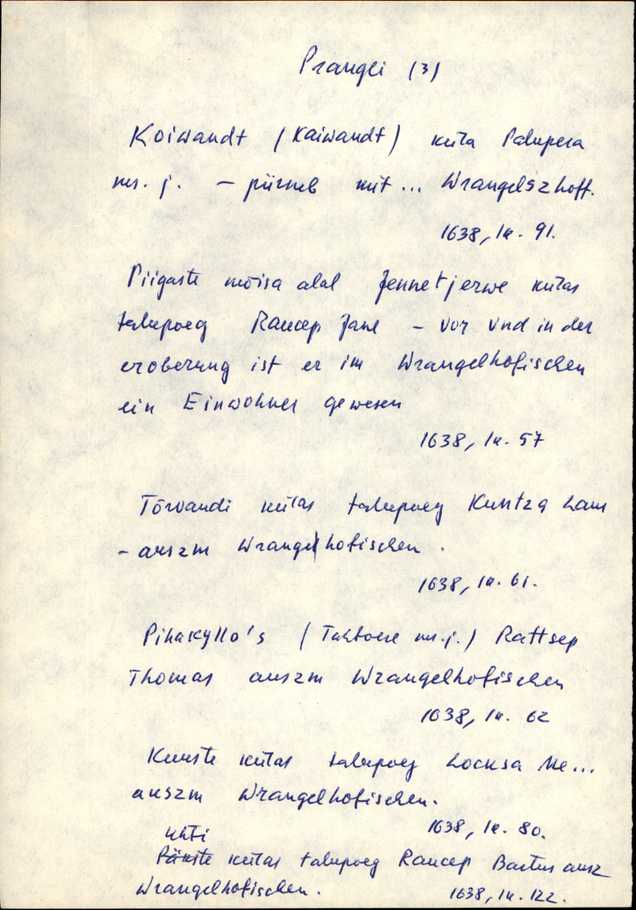 Prangli (3)
Koiwandt (Kaiwandt) küla Palupera
ms. j. – piirneb mit... Wrangelszhoff.
1638, lk. 91.
Piigaste mõisa alal Jennetjerwe külas
talupoeg Raucep Jane – vor und in der
eroberung ist er im Wrangelhofischen
ein Einwohner gewesen
1638, lk. 57
Tõrvandi külas talupoeg Kuntzq Laur
– auszm Wrangelhofischen.
1638, lk. 61.
Pihakyllo's (Tähtvere ms. j.) Rattsep
Thomas auszm Wrangelhofischen
1638, lk. 62
külas talupoeg Locksa Me...
auszm Wrangelhofischen.
1638, lk. 80.
Uhti
külas talupoeg Raucep Bartus ausz
Wrangelhofischen.
1638, lk. 122.